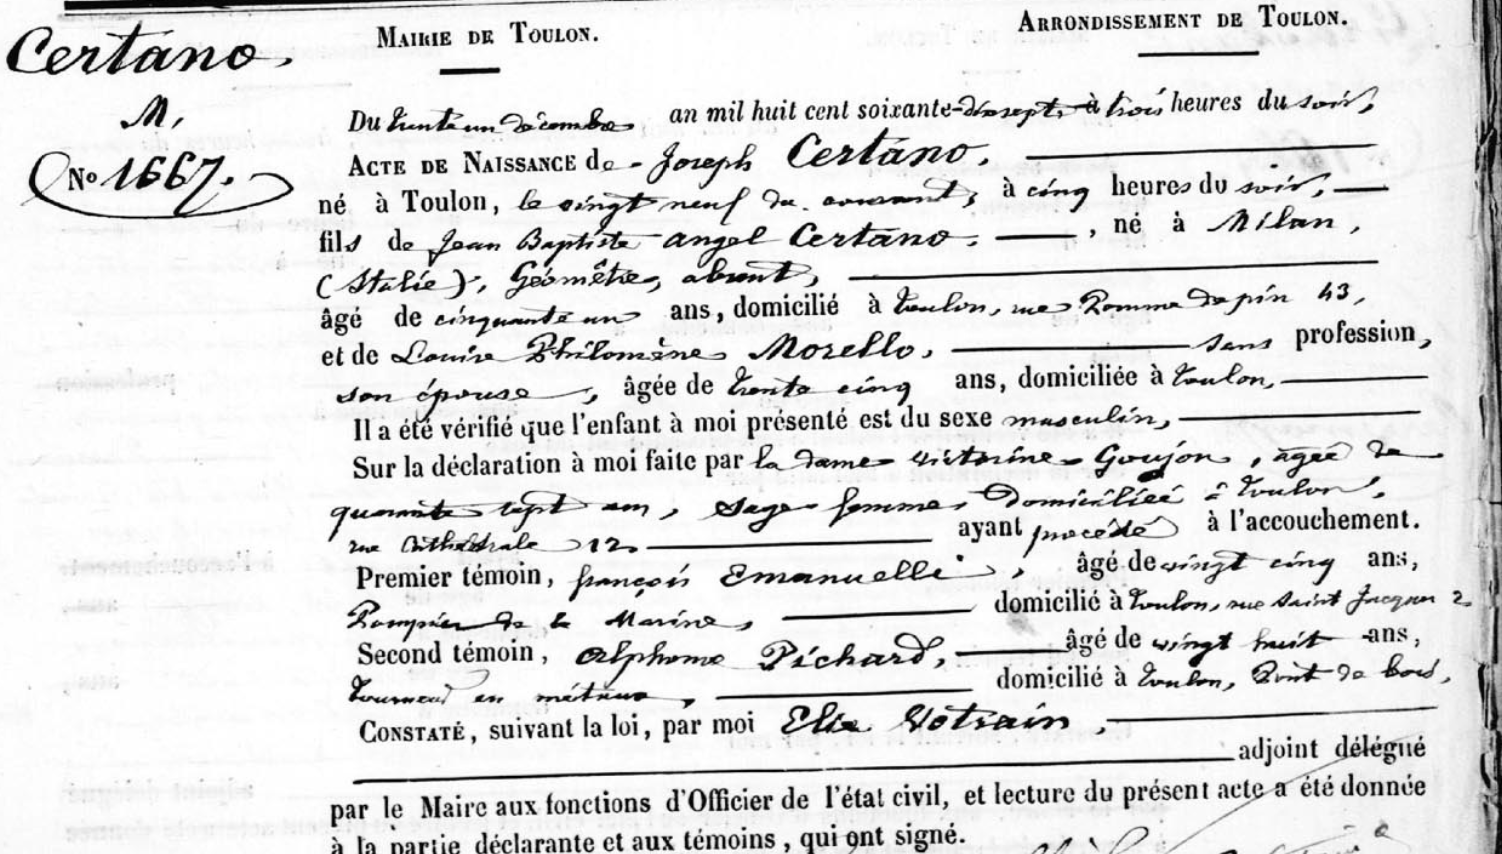 Certano.
M.
No 1667.
MAIRIE DE TOULON.
ARRONDISSEMENT DE TOULON.
Du trente un décembre an mil huit cent soixante-dix sept à trois heures du soir,
ACTE DE NAISSANCE de Joseph Certano.
né à Toulon, le vingt neuf du courant, à cinq heures du soir,
fils de Jean Baptiste angel Certano. , né à Milan,
(Italie), Géomètre, absent,
âgé de cinquante un ans, domicilié à Toulon, rue Pomme de pin 43,
et de Louise Philomène Morello, sans profession,
son épouse, âgée de trente cinq ans, domiciliée à Toulon,
Il a été vérifié que l'enfant à moi présenté est du sexe masculin,
Sur la déclaration à moi faite par la dame Victorine Goujon, agée de
quarante sept ans, Sage femme, Domiciliée à Toulon,
rue Cathédrale 12 ayant procédé à l'accouchement.
Premier témoin, françois Emanuelli, âgé de vingt cinq ans,
Pompier de la Marine, domicilié à Toulon, rue Saint Jacques 2
Second témoin, Alphonse Pichard, âgé de vingt huit ans,
Tourneur en métaux, domicilié à Toulon, Pont de bois,
CONSTATÉ, suivant la loi, par moi Elie
adjoint délégué
par le Maire aux fonctions d'Officier de l'état civil, et lecture du présent acte a été donnée
à la partie déclarante et aux témoins, qui ont signé.